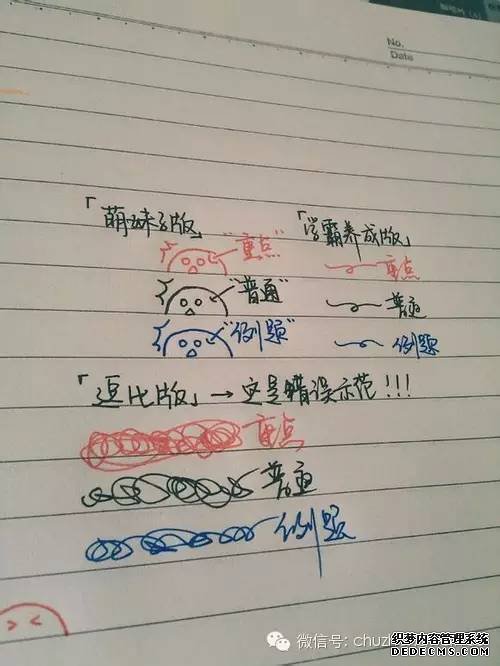 No.
Date
「萌妹子版」 「学霸养成版」
"重点" 重点
"普通" 普通
"例题" 例题
「逗比版」→这是错误示范!!!
重点
普通
例题
微信号: chuzh
织梦内容管理系统
DEDECMS.COM